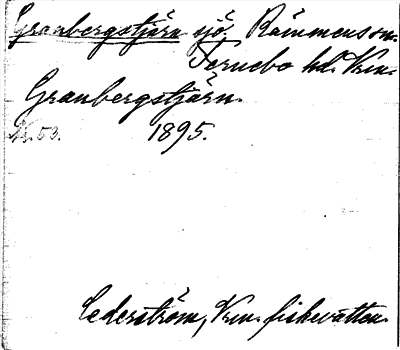 Granbergstjärn sjö. Rämmens sn.
Fernebo hd. Vrm.
Granbergstjärn.
Nr. 53. 1895.
Cederström, Vrm. fiskevatten.